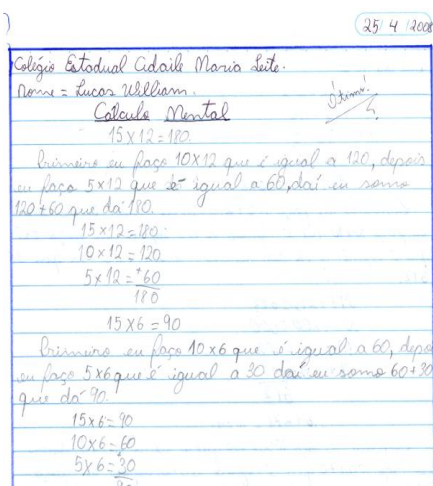 25/4/2008
Colégio Estadual Cidaile Maria Leite.
Nome = Lucas William.
Ótimo!
Cálculo Mental
15x12=180
Primeiro eu faço 10x12 que é igual a 120, depois
eu faço 5x12 que é igual a 60, daí eu somo
120+60 que dá 180.
15x12=180
10x12=120
5x12=+60
180
15x6=90
Primeiro eu faço 10x6 que é igual a 60, depo
eu faço 5x6 que é igual a 30 daí eu somo 60+30
que dá 90.
15x6=90
10x6=60
5x6=+30
90